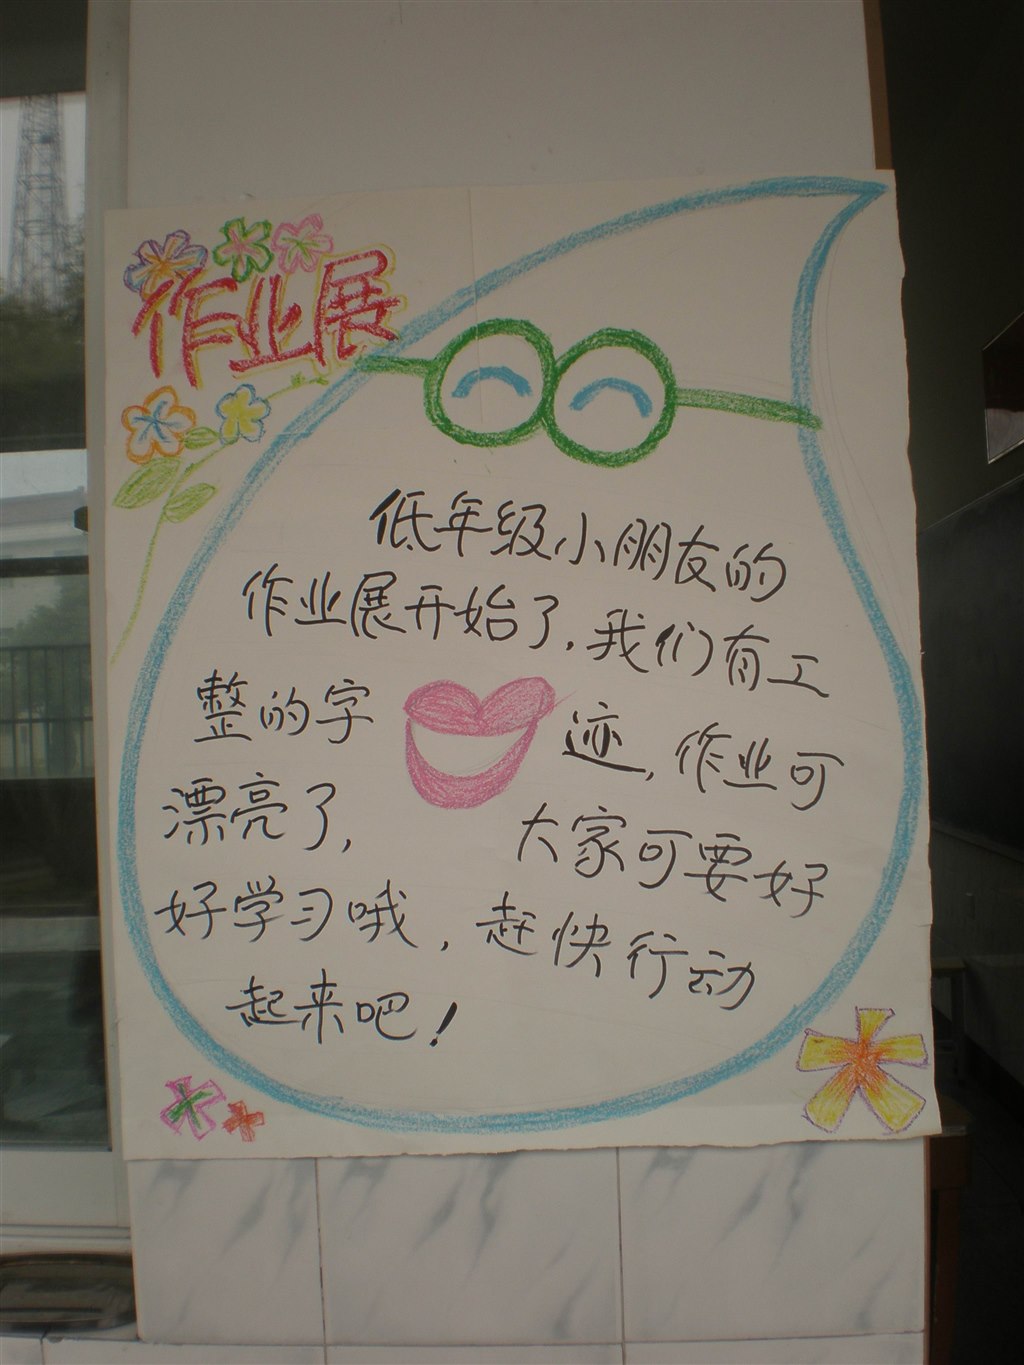 作业展
低年级小朋友的
作业展开始了，我们有工
整的字迹，作业可
漂亮了，大家可要好
好学习哦，赶快行动
起来吧！